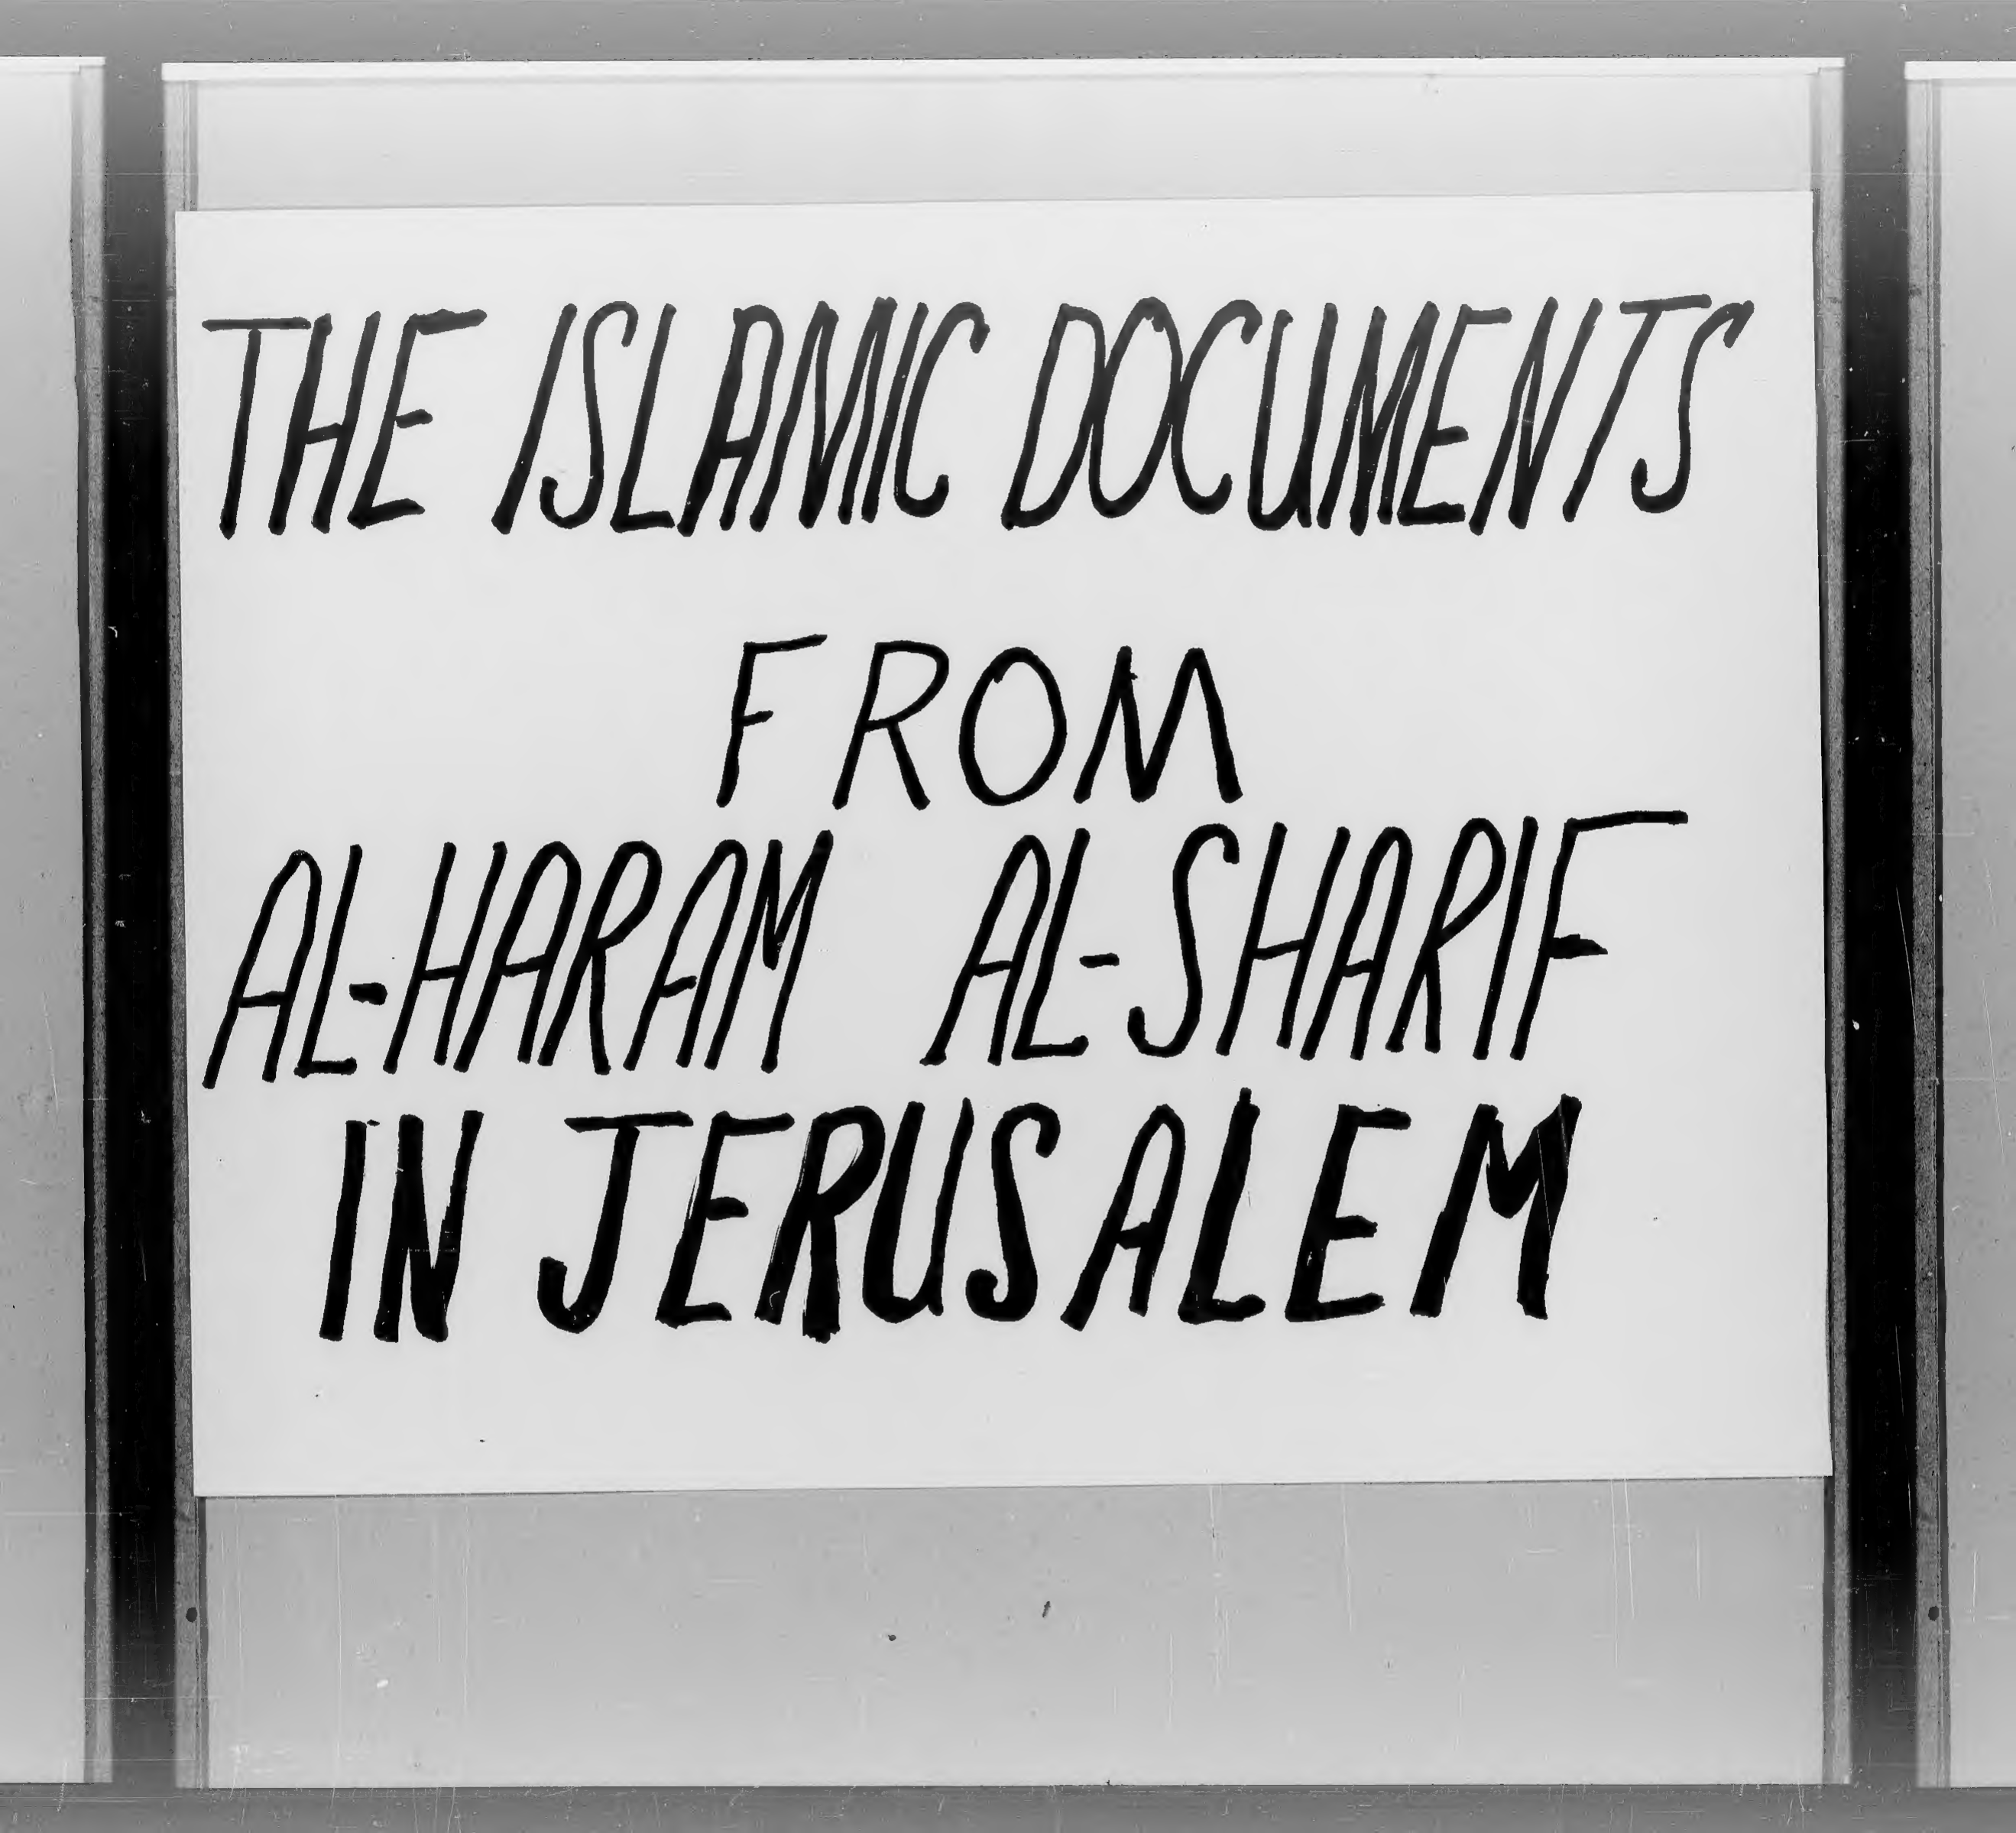 THE ISLAMIC DOCUMENTS
FROM
AL-HARAM AL-SHARIF
IN JERUSALEM